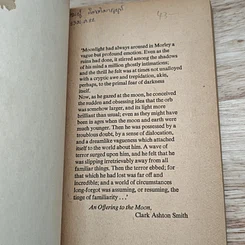 "Moonlight had always around in Morley a
vague but profound emotion. Even as the
ruins had done, it stirred among the shadows
of his mind a million ghostly intimations;
and the thrill he felt was at times not unalloyed
with a cryptic awe and trepidation, akin,
perhaps, to the primal fear of darkness
itself.
Now, as he gazed at the moon, he conceived
the sudden and obsessing idea that the orb
was somehow larger, and its light more
brilliant than usual; even as they might have
been in ages when the moon and earth were
much younger. Then he was possessed by a
troublous doubt, by a sense of dislocation,
and a dreamlike vagueness which attached
itself to the world about him. A wave of
terror surged upon him, and he felt that he
was slipping irretrievably away from all
familiar things. Then the terror ebbed; for
that which he had lost was far off and
incredible; and a world of circumstances
long-forgot was assuming, or resuming, the
tinge of familiarity . . ."
An Offering to the Moon,
Clark Ashton Smith